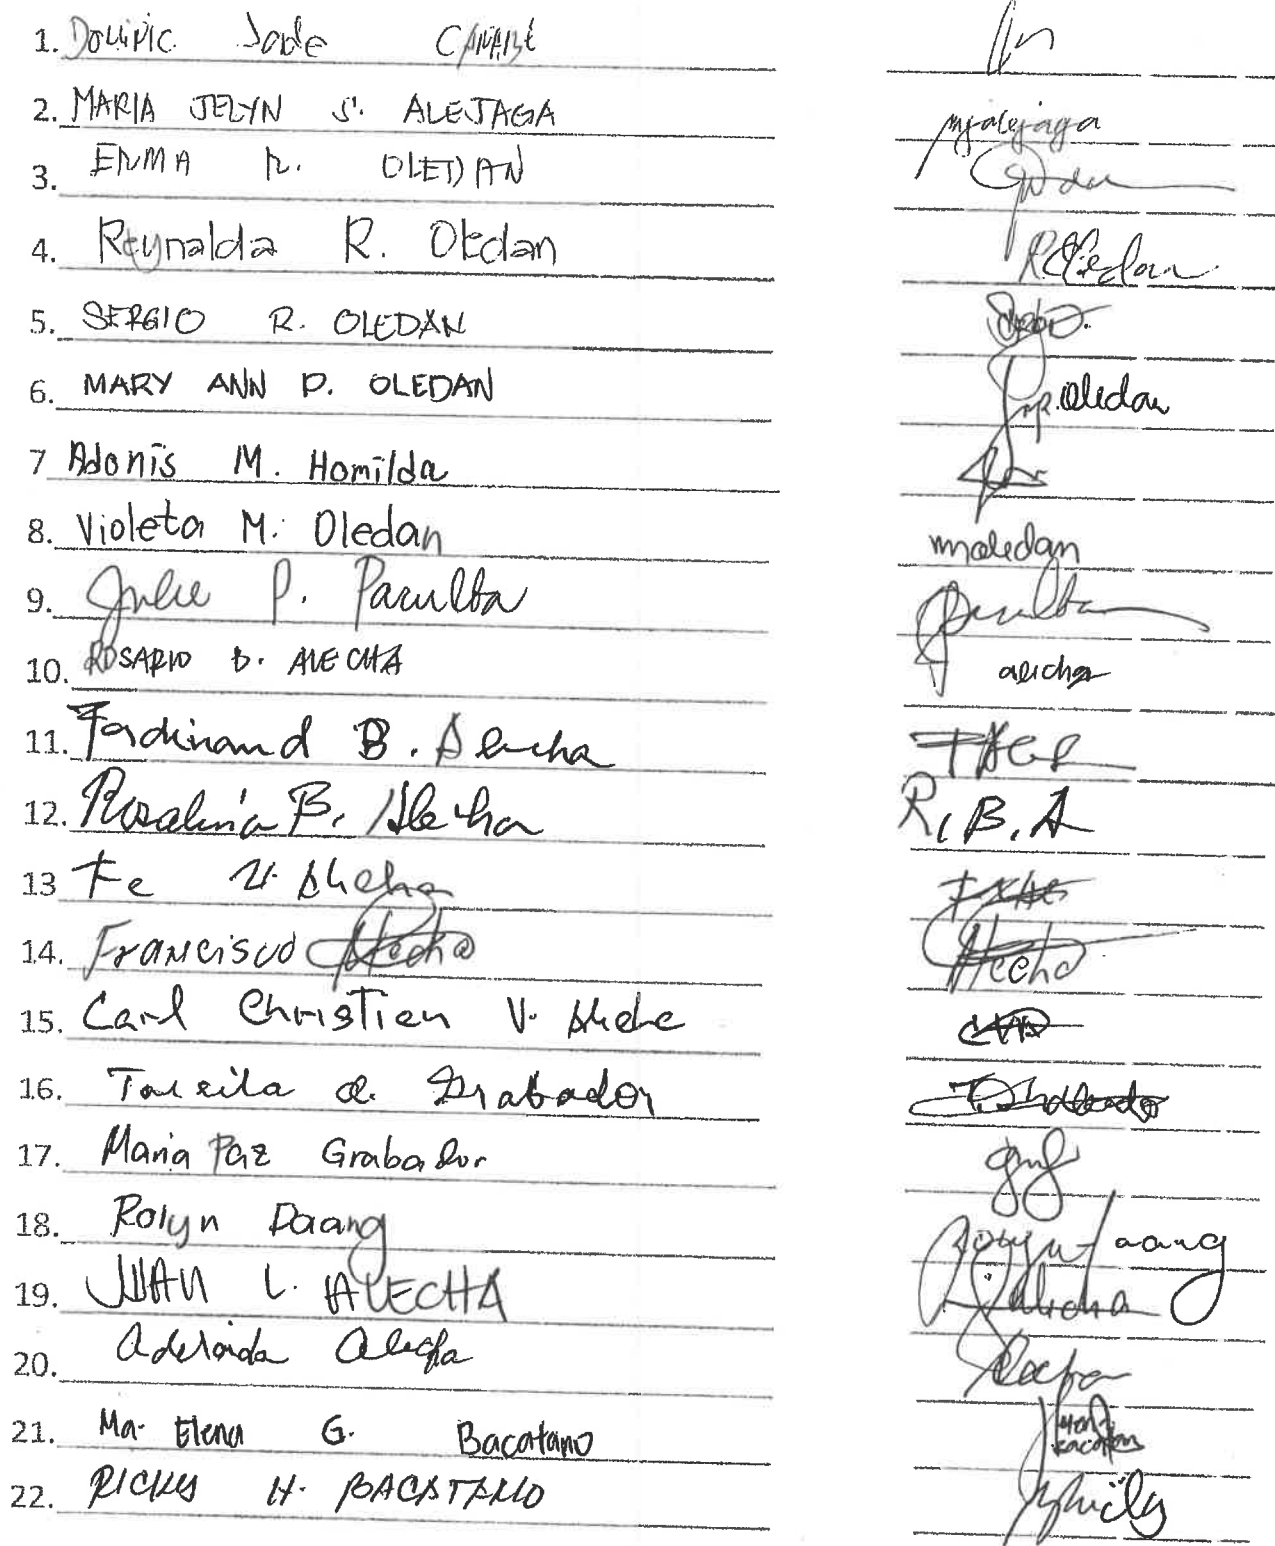 1. Dominic Jade
2. MARIA JELYN S. ALEJAGA mjalejaga
3. ERMA R. OLEDAN
4. Reynalda R. Oledan R. Oledan
5. SERGIO R. OLEDAN
6. MARY ANN P. OLEDAN mp. Oledan
7 Adonis M. Homilda
8. Violeta M. Oledan vmoledan
9. Julie P. Paculba Paculba
10. ROSARIO B. ALECHA alecha
11. Ferdinand B. Alecha
12. Rosalina B. Alecha R. B. A
13 Fe V. Alecha
14. Francisco Alecha Alecha
15. Carl Christian V. Alecha
16. Grabador
17. Maria Paz Grabador
18. Rolyn Daang Rolyn Daang
19. JUAN L. ALECHA Alecha
20. Adelaida Alecha
21. Ma. Elena G. Bacatano
22. RICKY H. BACATANO